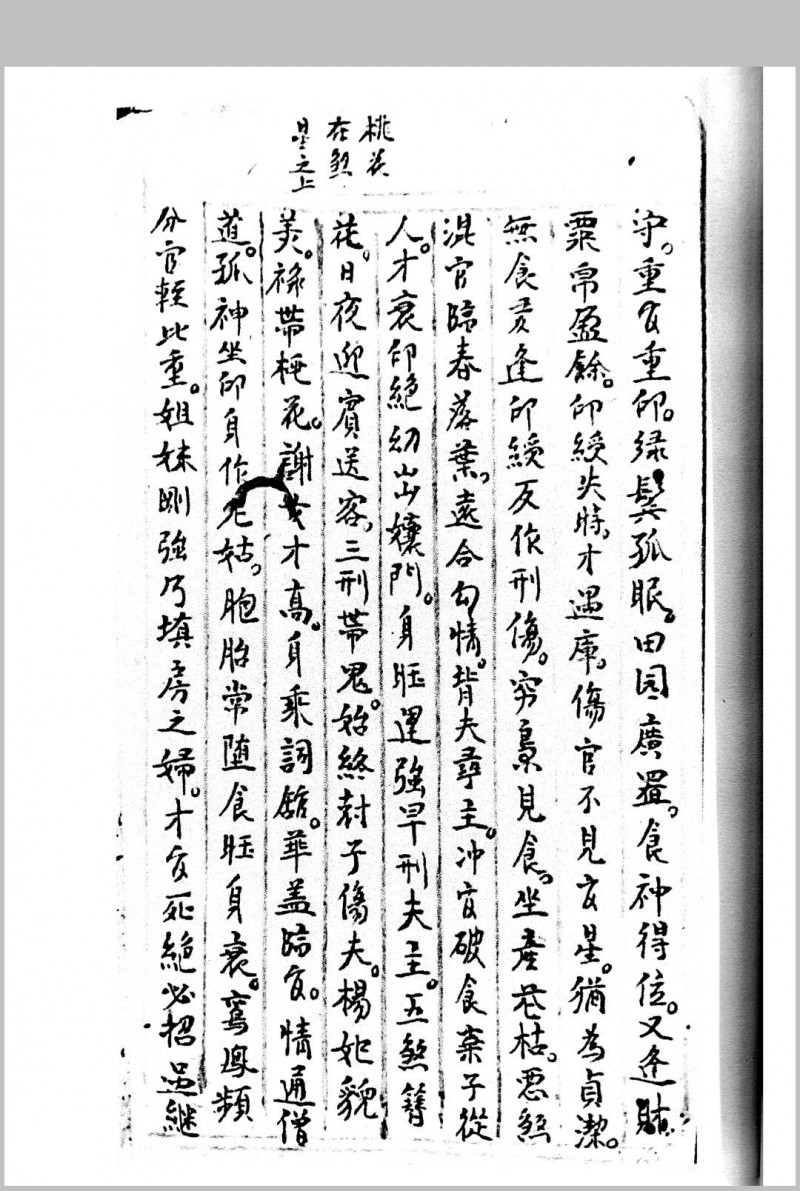 桃花
在煞
星之上
守。重官重印。緑鬢孤眠。田园廣置。食神得位。又逢財
粟帛盈餘。印綬失時。才遇庫。傷官不見官星。猶為貞潔。
無食多逢印綬反作刑傷。穷梟見食。坐產花枯。悪煞
混官臨春落葉。遠合勾情。背夫尋主。冲官破食棄子從
人。才衰印絶幼出孃門。身旺運強早刑夫主。五煞簪
花。日夜迎賓送客。三刑帶鬼。始終尅子傷夫。楊妃貌
美。禄帶桃花。謝女才高。身乘詞舘。華盖臨官。情通僧
道。孤神坐印身作尼姑。胞胎常随食旺身衰。鸞鳳頻
分官輕比重。姐妹剛強乃填房之婦。才官死絶必招過継